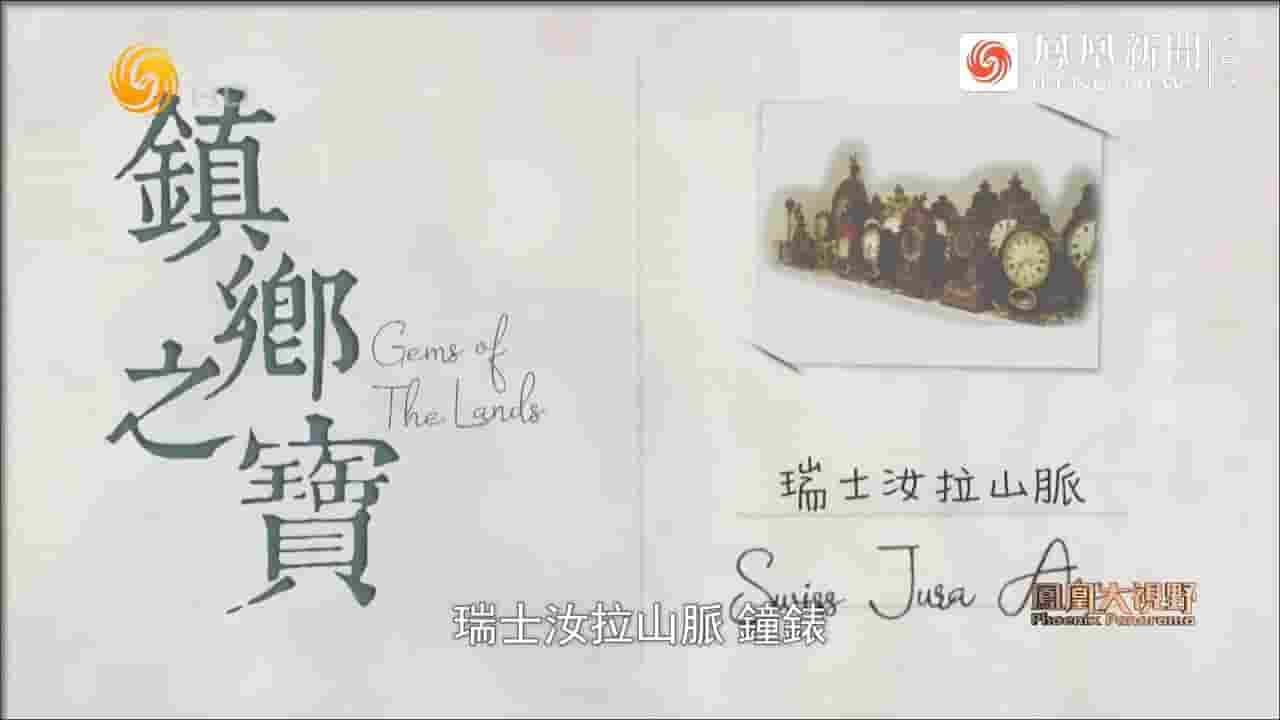 鳳凰新聞
鎮鄉之寶
Gems of
The Lands
瑞士汝拉山脈
Swiss Jura
鳳凰大視野
Phoenix Panorama
瑞士汝拉山脈 鐘錶